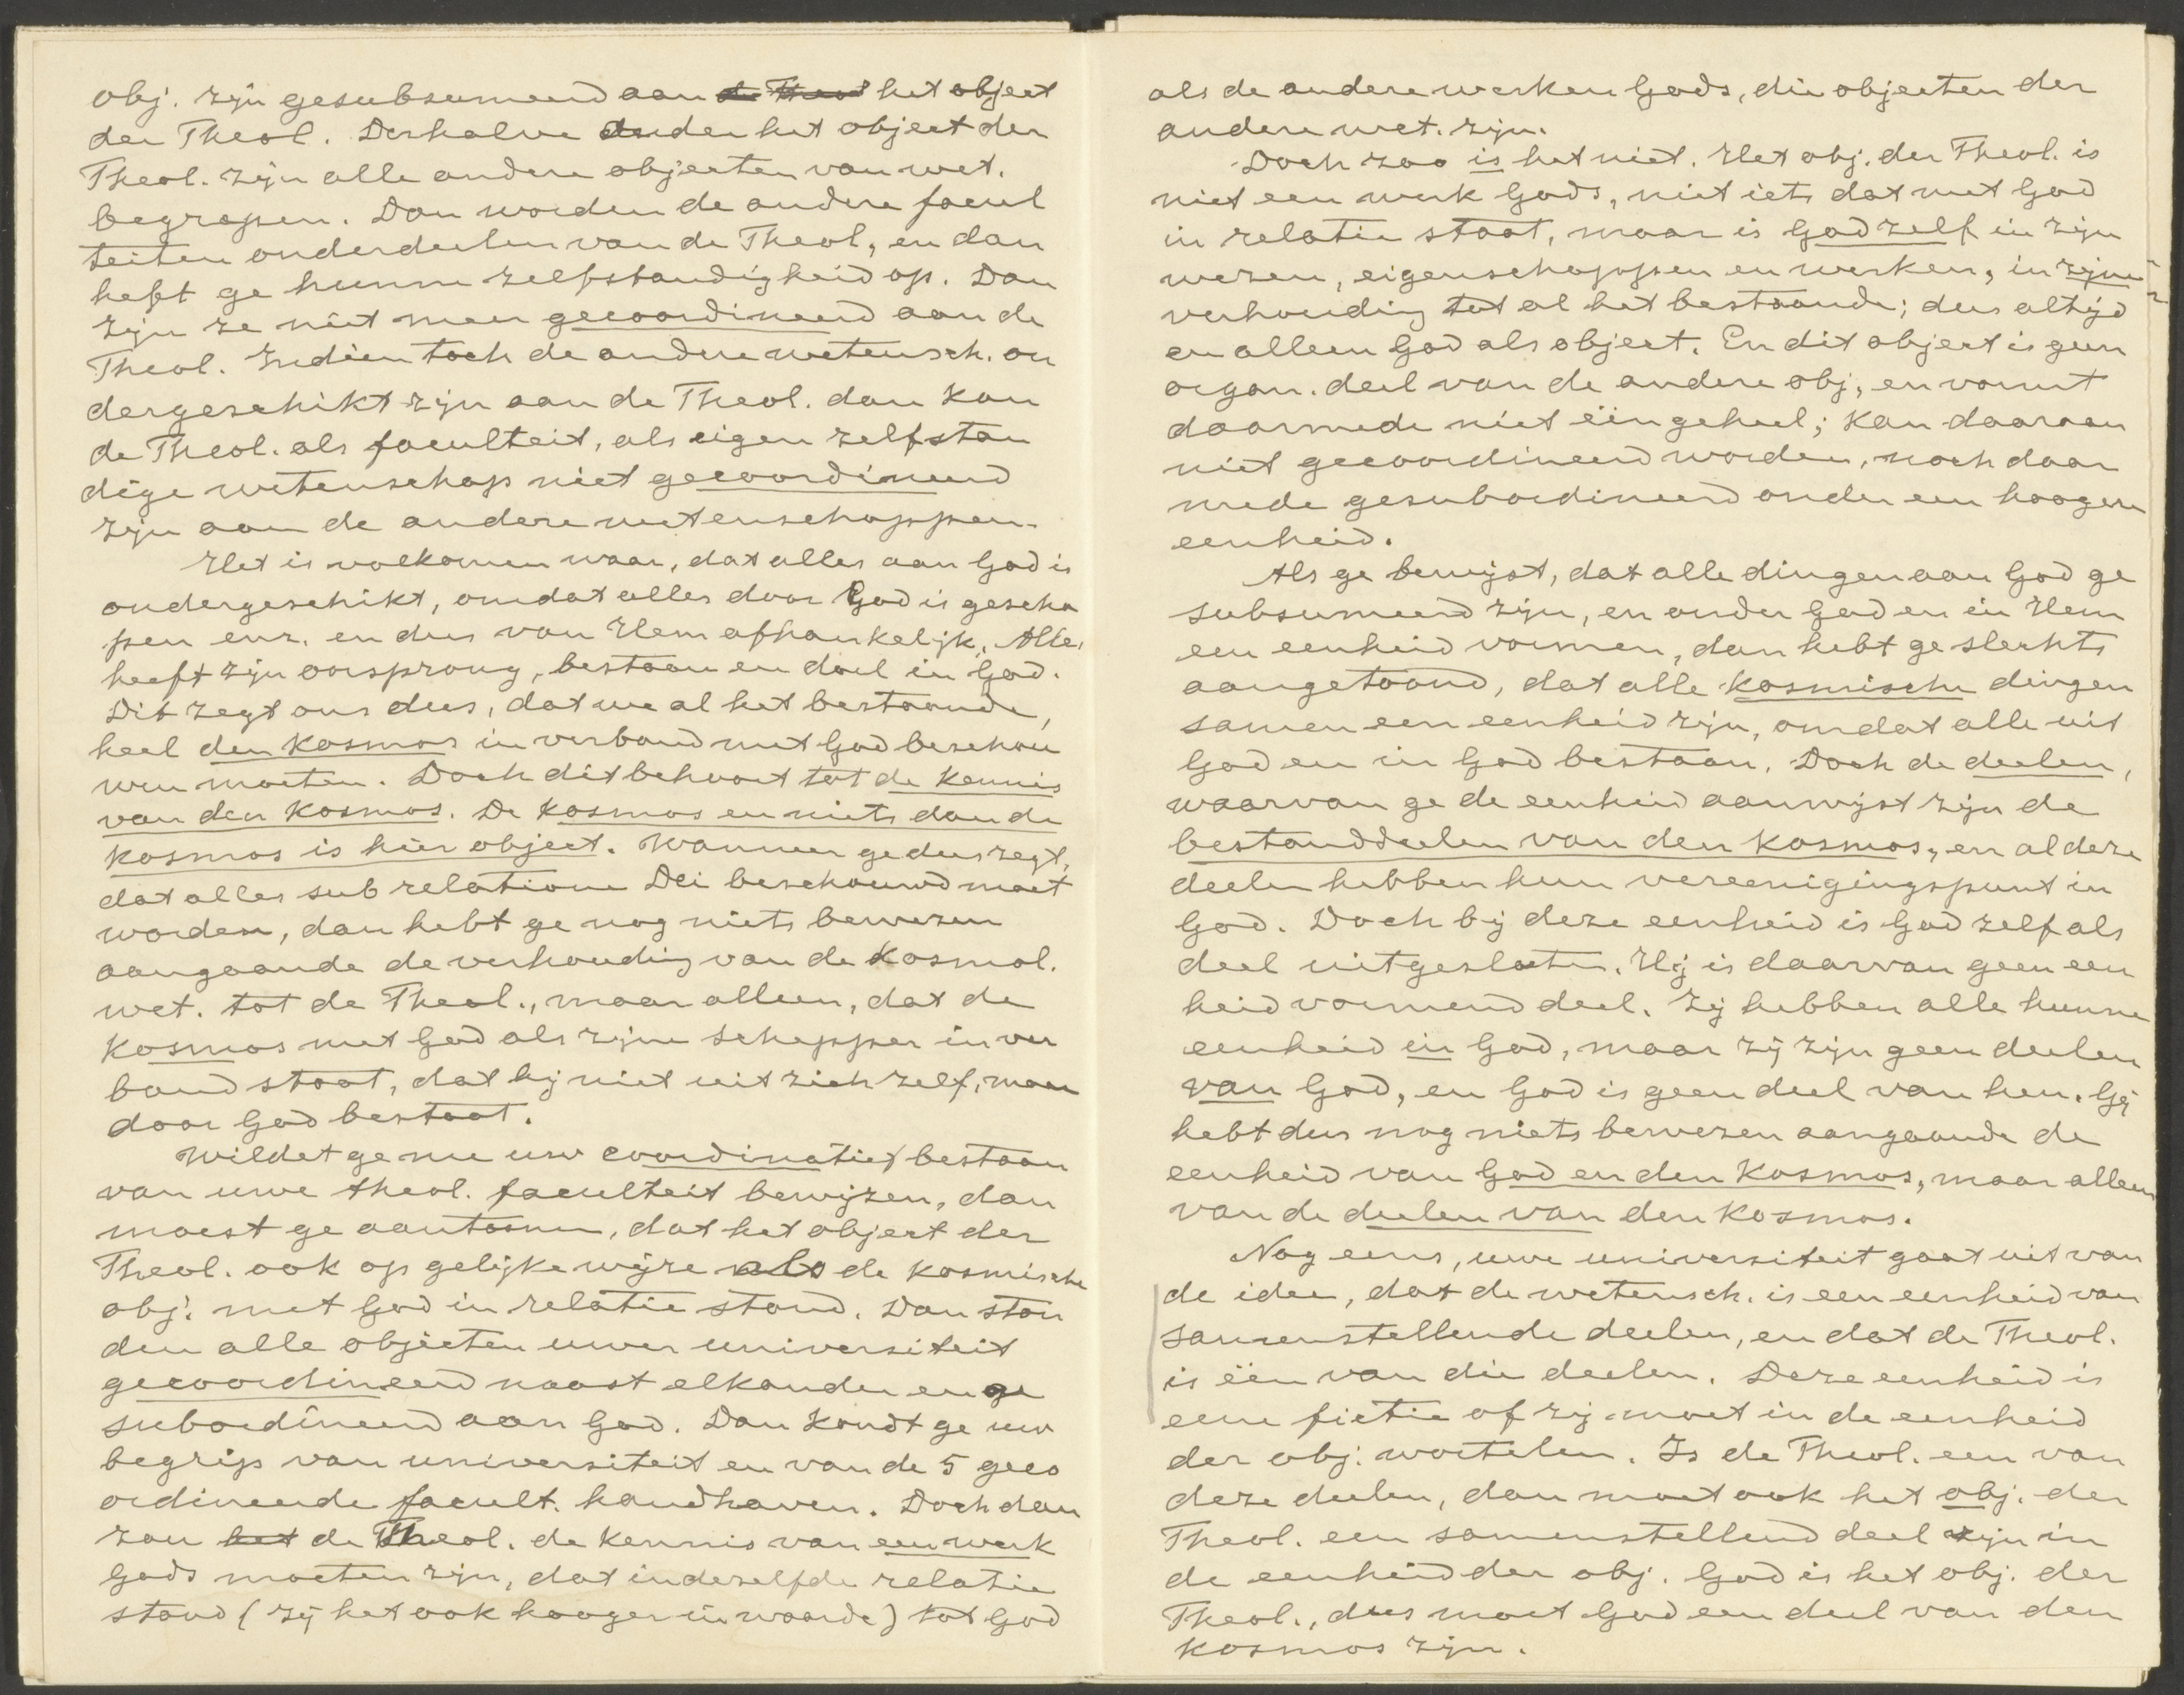 obj. zijn gesubsumeerd aan de Theol het object
der Theol. Derhalve onder het object der
Theol. zijn alle andere objecten van wet.
begrepen. Dan worden de andere facul
teiten onderdeelen van de Theol, en dan
heft ge hunne zelfstandigheid op. Dan
zijn ze niet meer gecoordineerd aan de
Theol. Indien toch de andere wetensch. on
dergeschikt zijn aan de Theol. dan kan
de Theol. als faculteit, als eigen zelfstan
dige wetenschap niet gecoordineerd
zijn aan de andere wetenschappen.
Het is volkomen waar, dat alles aan God is
ondergeschikt, omdat alles door God is gescha
pen enz. en dus van Hem afhankelijk. Alles
heeft zijn oorsprong, bestaan en doel in God.
Dit zegt ons dus, dat we al het bestaande,
heel den kosmos in verband met God beschou
wen moeten. Doch dit behoort tot de kennis
van den kosmos. De kosmos en niets dan de
kosmos is hier object. Wanneer ge dus zegt,
dat alles sub relatione Dei beschouwd moet
worden, dan hebt ge nog niets bewezen
aangaande de verhouding van de kosmol.
wet. tot de Theol., maar alleen, dat de
kosmos met God als zijne schepper in ver
band staat, dat hij niet uit zich zelf, maar
door God bestaat.
Wildet ge nu uw coordinatie bestaan
van uwe theol. faculteit bewijzen, dan
moest ge aantoonen, dat het object der
Theol. ook op gelijke wijze als de kosmische
obj. met God in relatie stond. Dan ston
den alle objecten uwer universiteit
gecoordineerd naast elkander en ge
subordineerd aan God. Dan kondt ge uw
begrip van universiteit en van de 5 geco
ordineerde facult. handhaven. Doch dan
zou het de Theol. de kennis van een werk
Gods moeten zijn, dat in dezelfde relatie
stond (zij het ook hooger in waarde) tot God
als de andere werken Gods, die objecten der
andere wet. zijn.
Doch zoo is het niet. Het obj. der Theol. is
niet een werk Gods, niet iets dat met God
in relatie staat, maar is God zelf in zijn
wezen, eigenschappen en werken, in zijne
verhouding tot al het bestaande; dus altijd
en alleen God als object. En dit object is geen
organ. deel van de andere obj, en vormt
daarmede niet één geheel; kan daaraan
niet gecoordineerd worden, noch daar
mede gesubordineerd onder een hoogere
eenheid.
Als ge bewijst, dat alle dingen aan God ge
subsumeerd zijn, en onder God en in Hem
een eenheid vormen, dan hebt ge slechts
aangetoond, dat alle kosmische dingen
samen een eenheid zijn, omdat alle uit
God en in God bestaan. Doch de deelen,
waarvan ge de eenheid aanwijst zijn de
bestanddeelen van den kosmos, en al deze
deelen hebben hun vereenigingspunt in
God. Doch bij deze eenheid is God zelf als
deel uitgesloten. Hij is daarvan geen een
heid vormend deel. Zij hebben alle hunne
eenheid in God, maar zij zijn geen deelen
van God, en God is geen deel van hen. Gij
hebt dus nog niets bewezen aangaande de
eenheid van God en den kosmos, maar alleen
van de deelen van den kosmos.
Nog eens, uwe universiteit gaat uit van
de idee, dat de wetensch. is een eenheid van
samenstellende deelen, en dat de Theol.
is één van die deelen. Deze eenheid is
eene fictie of zij moet in de eenheid
der obj. wortelen. Is de Theol. een van
deze deelen, dan moet ook het obj. der
Theol. een samenstellend deel zijn in
de eenheid der obj. God is het obj. der
Theol., dus moet God een deel van den
kosmos zijn.